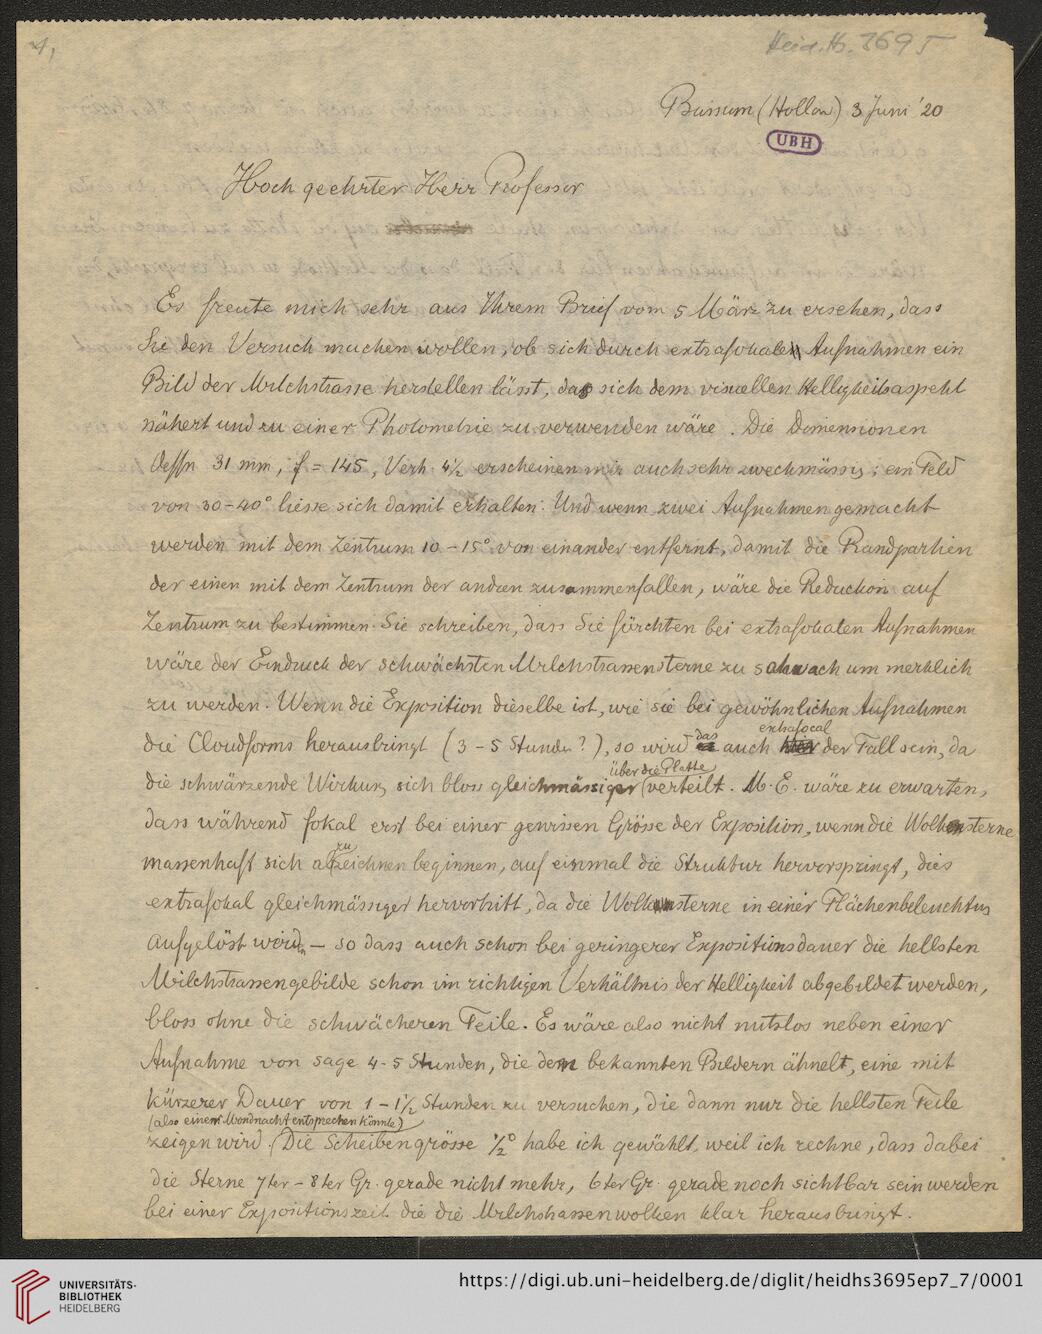 4,
Heid. Hs. 3695
Bussum (Hollan) 3 Juni '20
UBH
Hoch geehrter Herr Professor
Es freute mich sehr aus Ihrem Brief vom 5 März zu ersehen, dass
Sie den Versuch machen wollen, ob sich durch extrafokale Aufnahmen ein
Bild der Milchstrasse herstellen lässt, das sich dem visuellen Helligkeitsaspekt
nähert und zu einer Photometrie zu verwenden wäre. Die Dimensionen
Oeffn 31 mm, f = 145, Verh. 4½ erscheinen mir auch sehr zweckmässig; ein Feld
von 30–40° liesse sich damit erhalten. Und wenn zwei Aufnahmen gemacht
werden mit dem Zentrum 10–15° von einander entfernt, damit die Randpartien
der einen mit dem Zentrum der andren zusammenfallen, wäre die Reduction auf
Zentrum zu bestimmen. Sie schreiben, dass Sie fürchten bei extrafokalen Aufnahmen
wäre der Eindruck der schwächsten Milchstrassensterne zu schwach um merklich
zu werden. Wenn die Exposition dieselbe ist, wie sie bei gewöhnlichen Aufnahmen
die Cloudforms herausbringt (3–5 Stunden?), so wird das auch extrafocal der Fall sein, da
die schwärzende Wirkung sich bloss gleichmässiger über die Platte verteilt. M. E. wäre zu erwarten,
dass während fokal erst bei einer gewissen Grösse der Exposition, wenn die Wolkensterne
massenhaft sich abzuzeichnen beginnen, auf einmal die Struktur hervorspringt, dies
extrafokal gleichmässiger hervortritt, da die Wolkensterne in einer Flächenbeleuchtung
aufgelöst werden – so dass auch schon bei geringerer Expositionsdauer die hellsten
Milchstrassengebilde schon im richtigen Verhältnis der Helligkeit abgebildet werden,
bloss ohne die schwächeren Teile. Es wäre also nicht nutzlos neben einer
Aufnahme von sage 4–5 Stunden, die den bekannten Bildern ähnelt, eine mit
kürzerer Dauer von 1–1½ Stunden zu versuchen, die dann nur die hellsten Teile
zeigen wird (also einem Mondnacht entsprechen könnte). Die Scheibengrösse ½° habe ich gewählt, weil ich rechne, dass dabei
die Sterne 7ter–8ter Gr. gerade nicht mehr, 6ter Gr. gerade noch sichtbar sein werden
bei einer Expositionszeit die die Milchstrassenwolken klar herausbringt.
UNIVERSITÄTS-
BIBLIOTHEK
HEIDELBERG
https://digi.ub.uni-heidelberg.de/diglit/heidhs3695ep7_7/0001